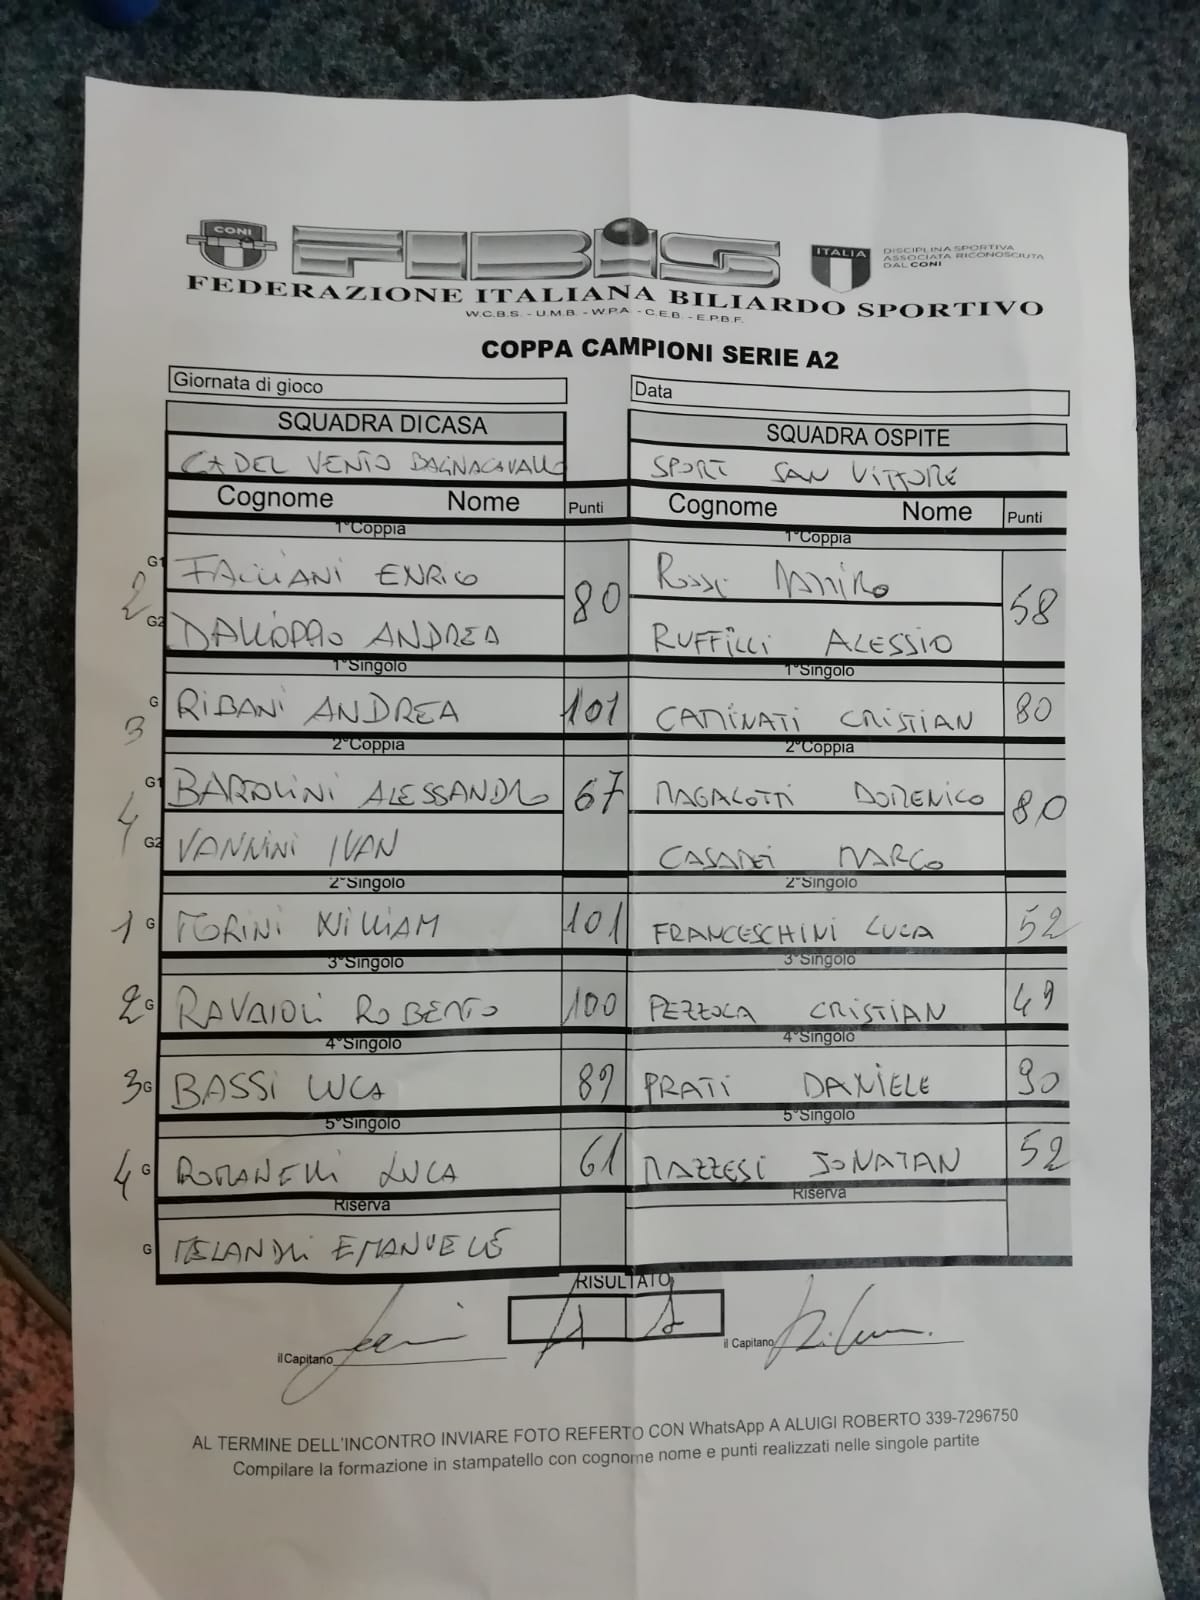 CONI
FIBIS
ITALIA
DISCIPLINA SPORTIVA
ASSOCIATA RICONOSCIUTA
DAL CONI
FEDERAZIONE ITALIANA BILIARDO SPORTIVO
W.C.B.S. - U.M.B. - W.P.A. - C.E.B. - E.P.B.F.
COPPA CAMPIONI SERIE A2
Giornata di gioco Data
SQUADRA DI CASA SQUADRA OSPITE
CA DEL VENTO BAGNACAVALLO SPORT SAN VITTORE
Cognome Nome Punti Cognome Nome Punti
1°Coppia 1°Coppia
2 G1 ENRICO 80 58
G2 ANDREA RUFFILLI ALESSIO
1°Singolo 1°Singolo
3 G RIBANI ANDREA 101 CAMINATI CRISTIAN 80
2°Coppia 2°Coppia
4 G1 BARTOLINI ALESSANDRO 67 MAGALOTTI DOMENICO 80
G2 VANNINI IVAN CASADEI MARCO
2°Singolo 2°Singolo
1 G MORINI WILLIAM 101 FRANCESCHINI LUCA 52
3°Singolo 3°Singolo
2 G RAVAIOLI ROBERTO 100 PEZZOLA CRISTIAN 49
4°Singolo 4°Singolo
3 G BASSI LUCA 89 PRATI DANIELE 90
5°Singolo 5°Singolo
4 G ROMANELLI LUCA 61 MAZZESI JONATAN 52
Riserva Riserva
G MELANDRI EMANUELE
RISULTATO
il Capitano il Capitano
AL TERMINE DELL'INCONTRO INVIARE FOTO REFERTO CON WhatsApp A ALUIGI ROBERTO 339-7296750
Compilare la formazione in stampatello con cognome nome e punti realizzati nelle singole partite